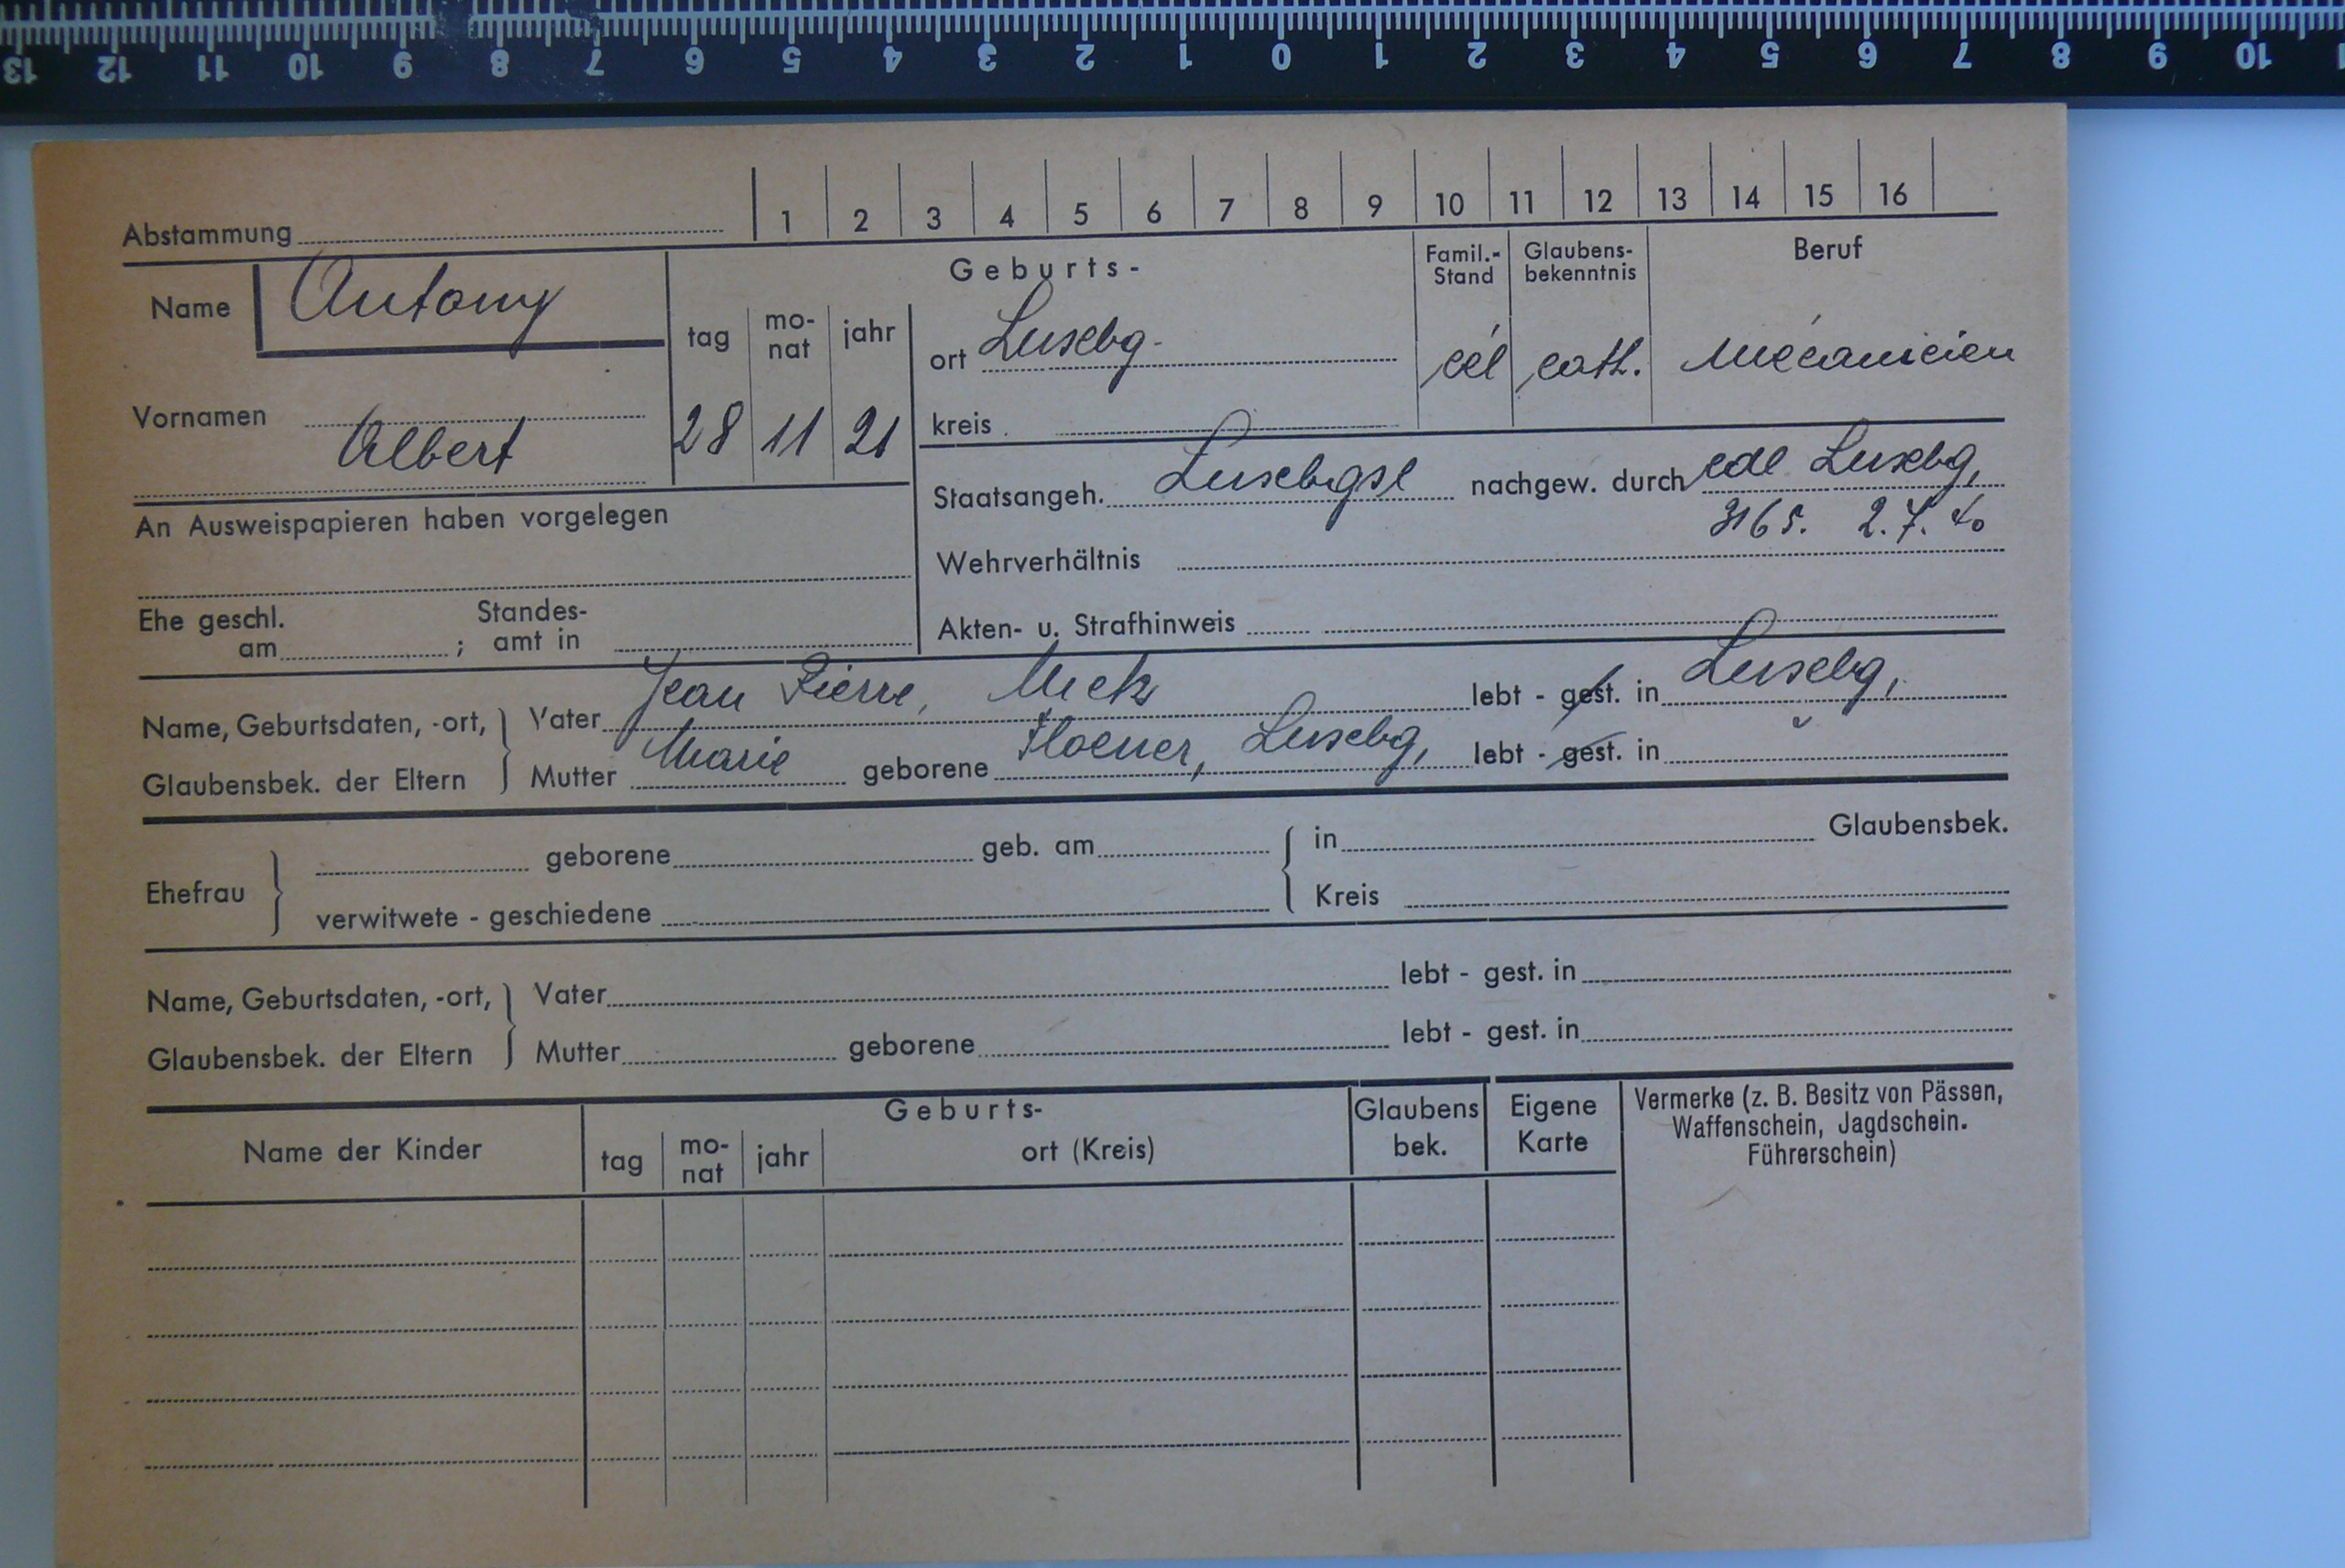 13 12 11 10 9 8 7 6 5 4 3 2 1 0 1 2 3 4 5 6 7 8 9 10
Abstammung 1 2 3 4 5 6 7 8 9 10 11 12 13 14 15 16
Name Antony
Vornamen Albert
Geburts-
tag mo-nat jahr
28 11 21
ort Luxebg.
kreis
Famil.-Stand
cél
Glaubens-bekenntnis
cath.
Beruf
Mécanicien
An Ausweispapieren haben vorgelegen
Staatsangeh. Luxebgse nachgew. durch cdl Luxebg,
3165. 2.7.40
Wehrverhältnis
Ehe geschl. am ; Standes-amt in
Akten- u. Strafhinweis
Name, Geburtsdaten, -ort, Vater Jean Pierre, lebt - gest. in Luxebg,
Glaubensbek. der Eltern Mutter Marie geborene Luxebg, lebt - gest. in "
Ehefrau geborene geb. am in Glaubensbek.
verwitwete - geschiedene Kreis
Name, Geburtsdaten, -ort, Vater lebt - gest. in
Glaubensbek. der Eltern Mutter geborene lebt - gest. in
Name der Kinder
Geburts-
tag mo-nat jahr ort (Kreis)
Glaubens bek.
Eigene Karte
Vermerke (z. B. Besitz von Pässen,
Waffenschein, Jagdschein.
Führerschein)